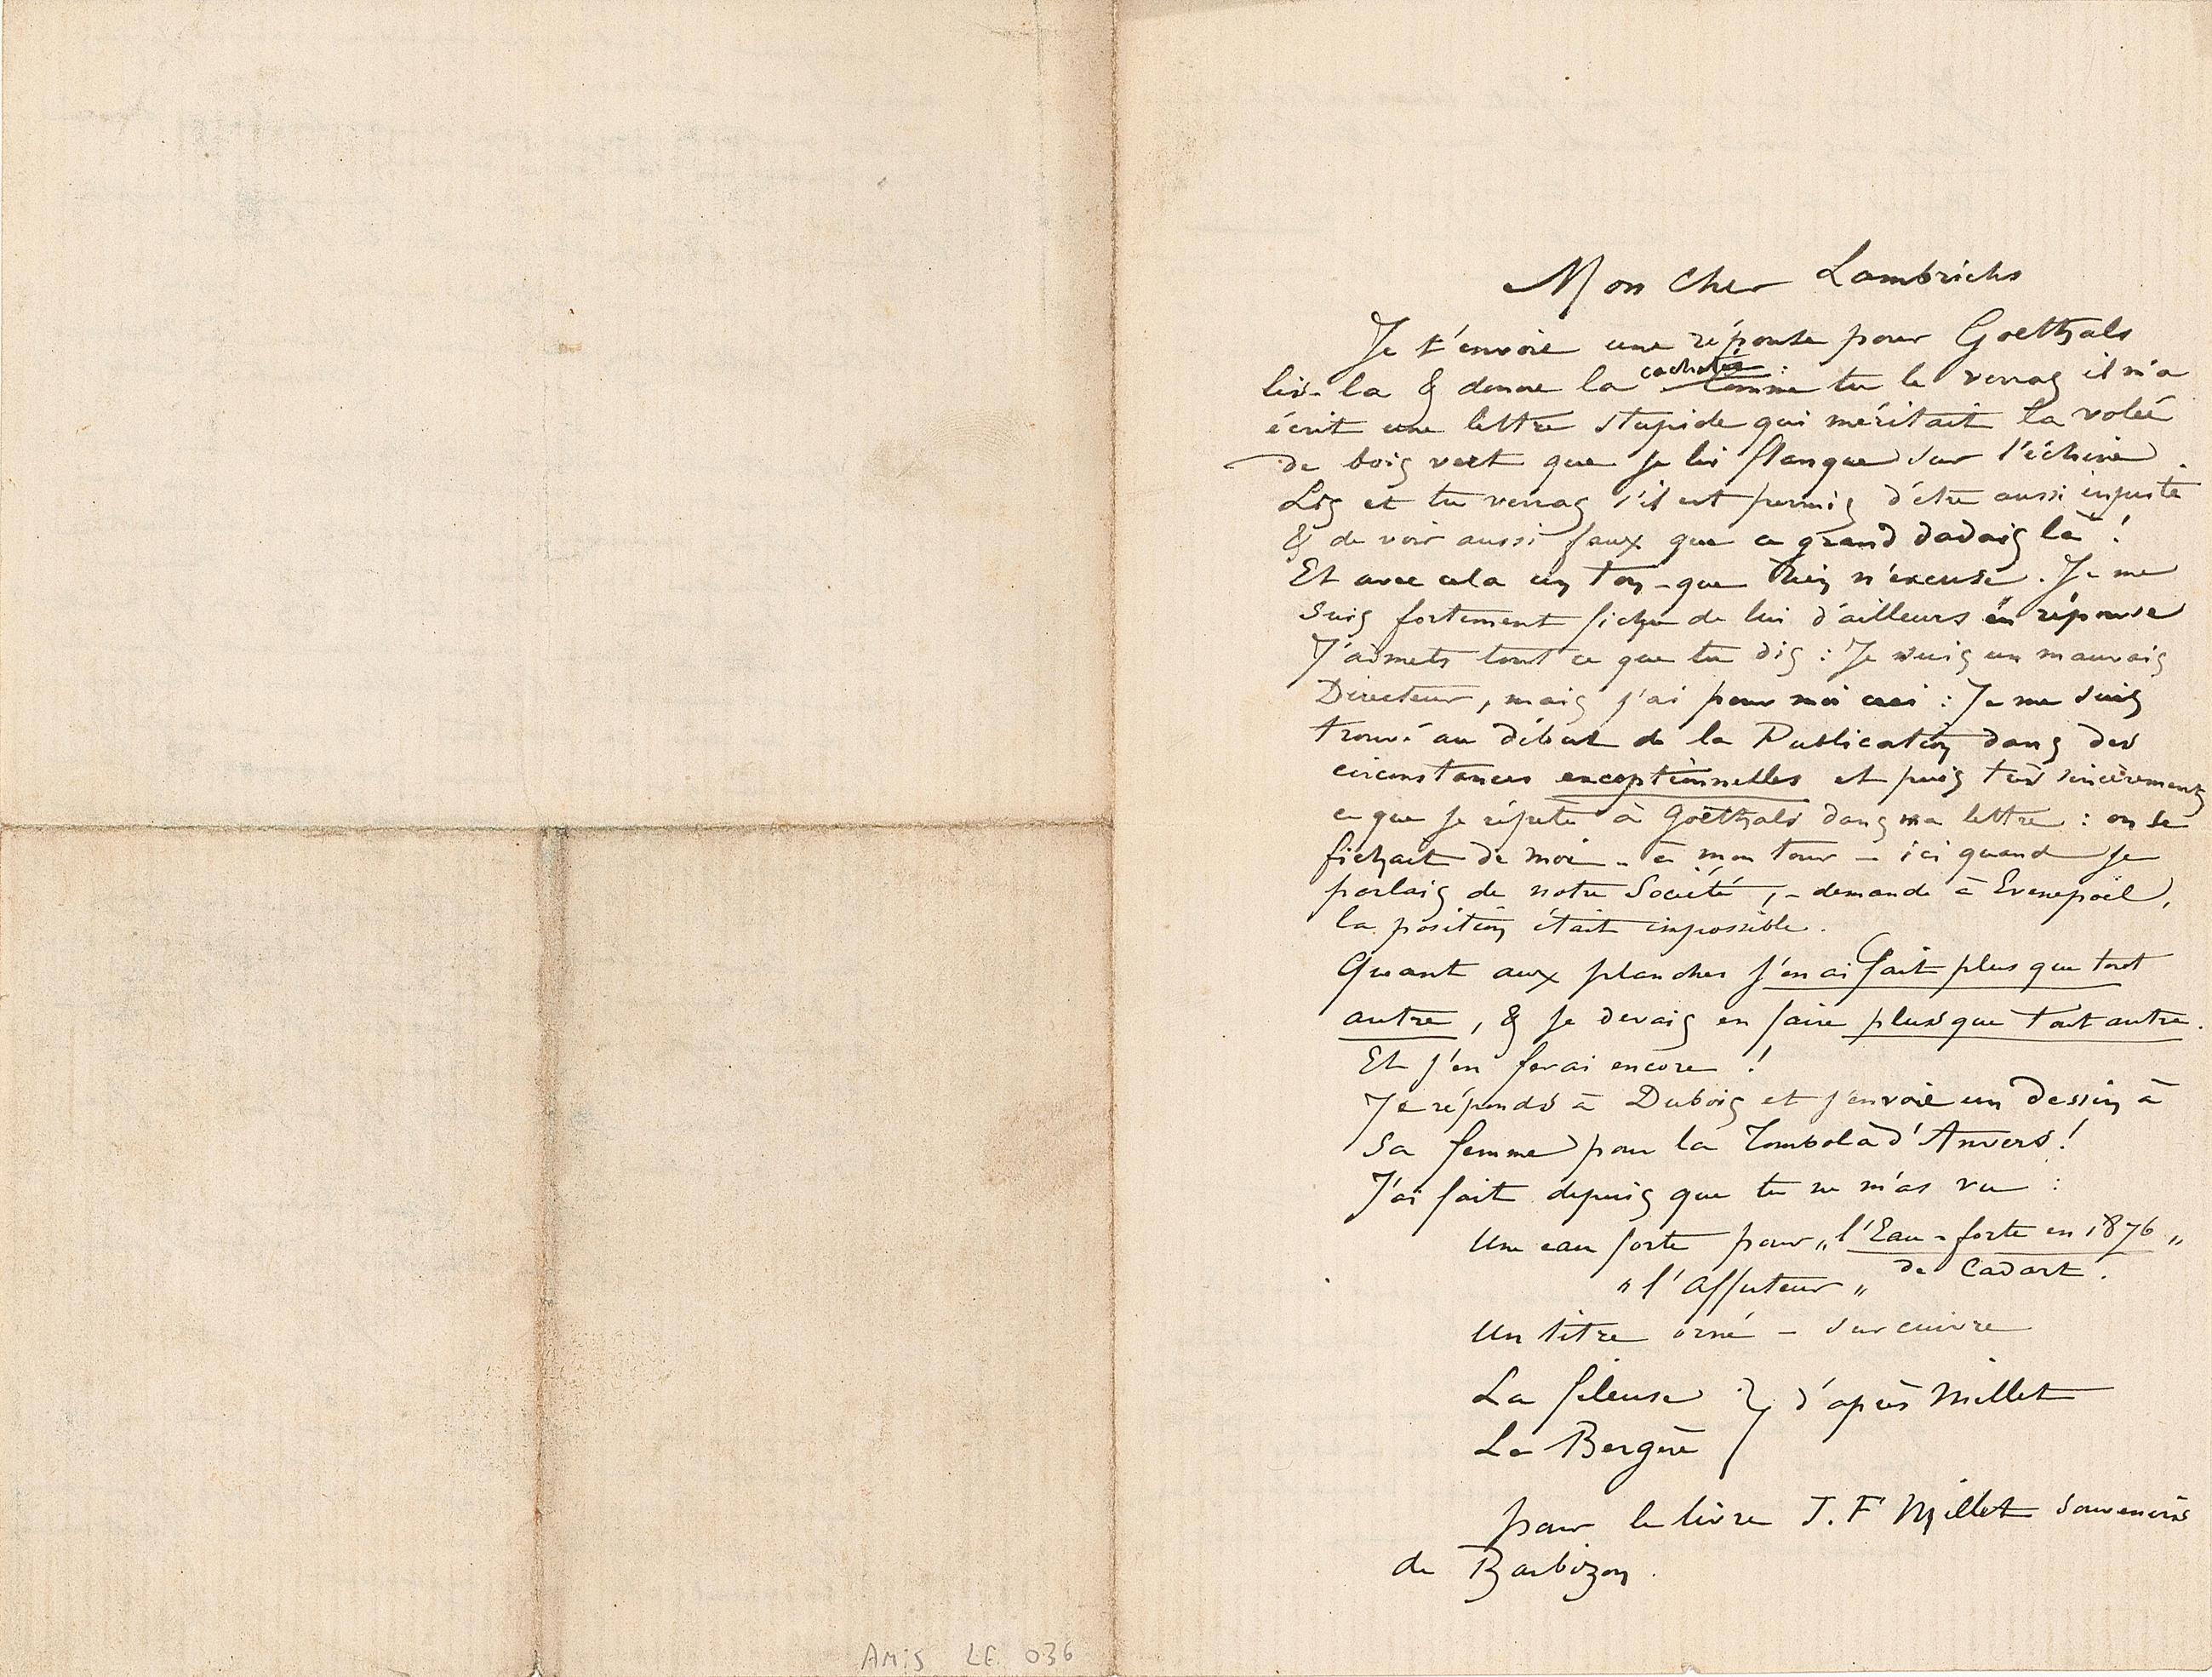 Mon Cher Lambrichs
Je t'envoie une réponse pour Goethals
lis-la & donne la cachetée : comme tu le verras il m'a
écrit une lettre stupide qui méritait la volée
de bois vert que je lui flanque sur l'échine.
Lis et tu verras s'il est permis d'être aussi injuste
& de voir aussi faux que ce grand dadais là !
Et avec cela un ton - que rien n'excuse. Je me
suis fortement fichu de lui d'ailleurs en réponse
J'admets tout ce que tu dis : Je suis un mauvais
Directeur, mais j'ai pour moi ceci : Je me suis
trouvé au début de la Publication dans des
circonstances exceptionnelles et puis très sincèrement
ce que je répète à Goëthals dans ma lettre : on se
fichait de moi - à mon tour - ici quand je
parlais de notre Société, - demande à Evenepoël,
la position était impossible.
Quant aux planches j'en ai fait plus que tout
autre, & je devais en faire plus que tout autre.
Et j'en ferai encore !
Je réponds à Dubois et j'envoie un dessin à
sa femme pour la Tombola d'Anvers !
J'ai fait depuis que tu ne m'as vu :
Une eau forte pour „l'Eau-forte en 1876„
de Cadart.
„l'Affuteur„
Un titre orné - sur cuivre
La fileuse } d'après Millet
La Bergère
pour le livre J. F Millet souvenirs
de Barbizon.
AMIS LE 036